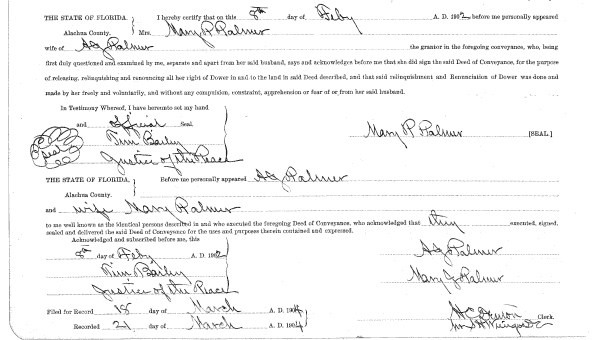 THE STATE OF FLORIDA. } I hereby certify that on this 8th day of Feby A. D. 1902 before me personally appeared
Alachua County. Mrs. Mary P Palmer
wife of A G Palmer the grantor in the foregoing conveyance, who, being
first duly questioned and examined by me, separate and apart from her said husband, says and acknowledges before me that she did sign the said Deed of Conveyance, for the purpose
of releasing, relinquishing and renouncing all her right of Dower in and to the land in said Deed described, and that said relinquishment and Renunciation of Dower was done and
made by her freely and voluntarily, and without any compulsion, constraint, apprehension or fear of or from her said husband.
In Testimony Whereof, I have hereunto set my hand
and official Seal
Seal Tim Bailey
Justice of the Peace
Mary P Palmer [SEAL]
THE STATE OF FLORIDA. } Before me personally appeared A G Palmer
Alachua County.
and wife Mary Palmer
to me well known as the identical persons described in and who executed the foregoing Deed of Conveyance, who acknowledged that they executed, signed,
sealed and delivered the said Deed of Conveyance for the uses and purposes therein contained and expressed.
Acknowledged and subscribed before me, this
8th day of Feby A. D. 1902
Tim Bailey
Justice of the Peace
A G Palmer
Mary J Palmer
Filed for Record 18 day of March A. D. 1904
Recorded 21 day of March A. D. 1904
Clerk.